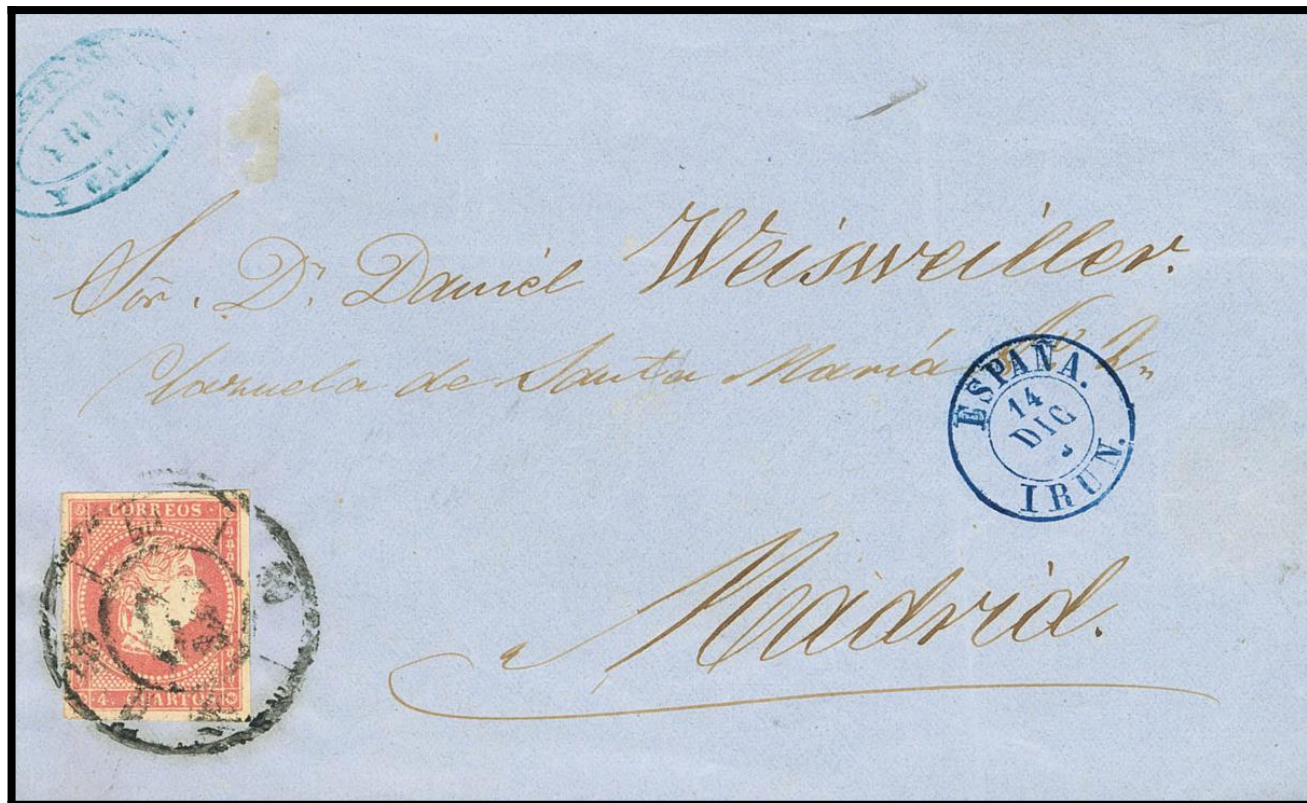 YRUN
Y
Sõr. Dn. Daniel Weisweiller.
Plazuela de Santa María No 2
ESPAÑA.
14
DIC
IRUN.
CORREOS
4. CUARTOS
Madrid.